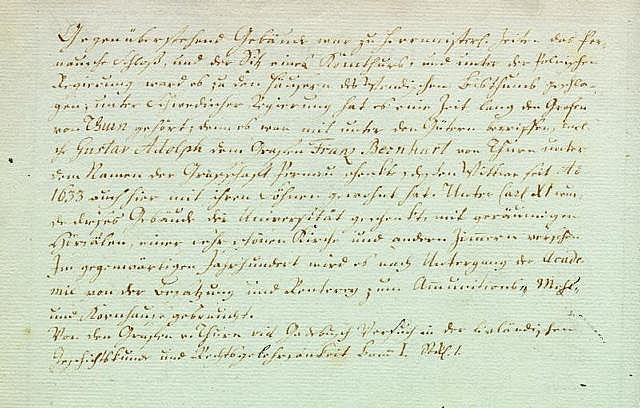 Gegenüberstehend Gebäude war zu Herrmeisterl. Zeiten das Per-
nausche Schloß, und der Sitz eines Komthurs; und unter der Polnischen
Regierung ward es zu den Häusern des Wendischen Bisthums geschla-
gen; unter Schwedischer Regierung hat es eine Zeit lang den Grafen
von Thurn gehört; denn es war mit unter den Gütern begriffen, wel-
che Gustav Adolph dem Grafen Franz Bernhart von Thurn unter
dem Namen der Grafschaft Pernau schenkte, dessen Wittwe seit Ao
1633 auch hier mit ihren Söhnen gewohnt hat. Unter Carl XI wur-
de dieses Gebäude der Universität geschenkt, mit geräumigen
Hörsälen, einer sehr schönen Kirche und andern Zimmern versehen.
Im gegenwärtigen Jahrhundert wird es nach Untergang der Acade-
mie von der Besatzung und Renterey zum Ammunitions- Mehl-
und Kornhause gebraucht.
Von den Grafen v. Thurn vid. Gadebusch Versuch in der Livländischen
Geschichtskunde und Rechtsgelehrsamkeit Band I. St. 1.